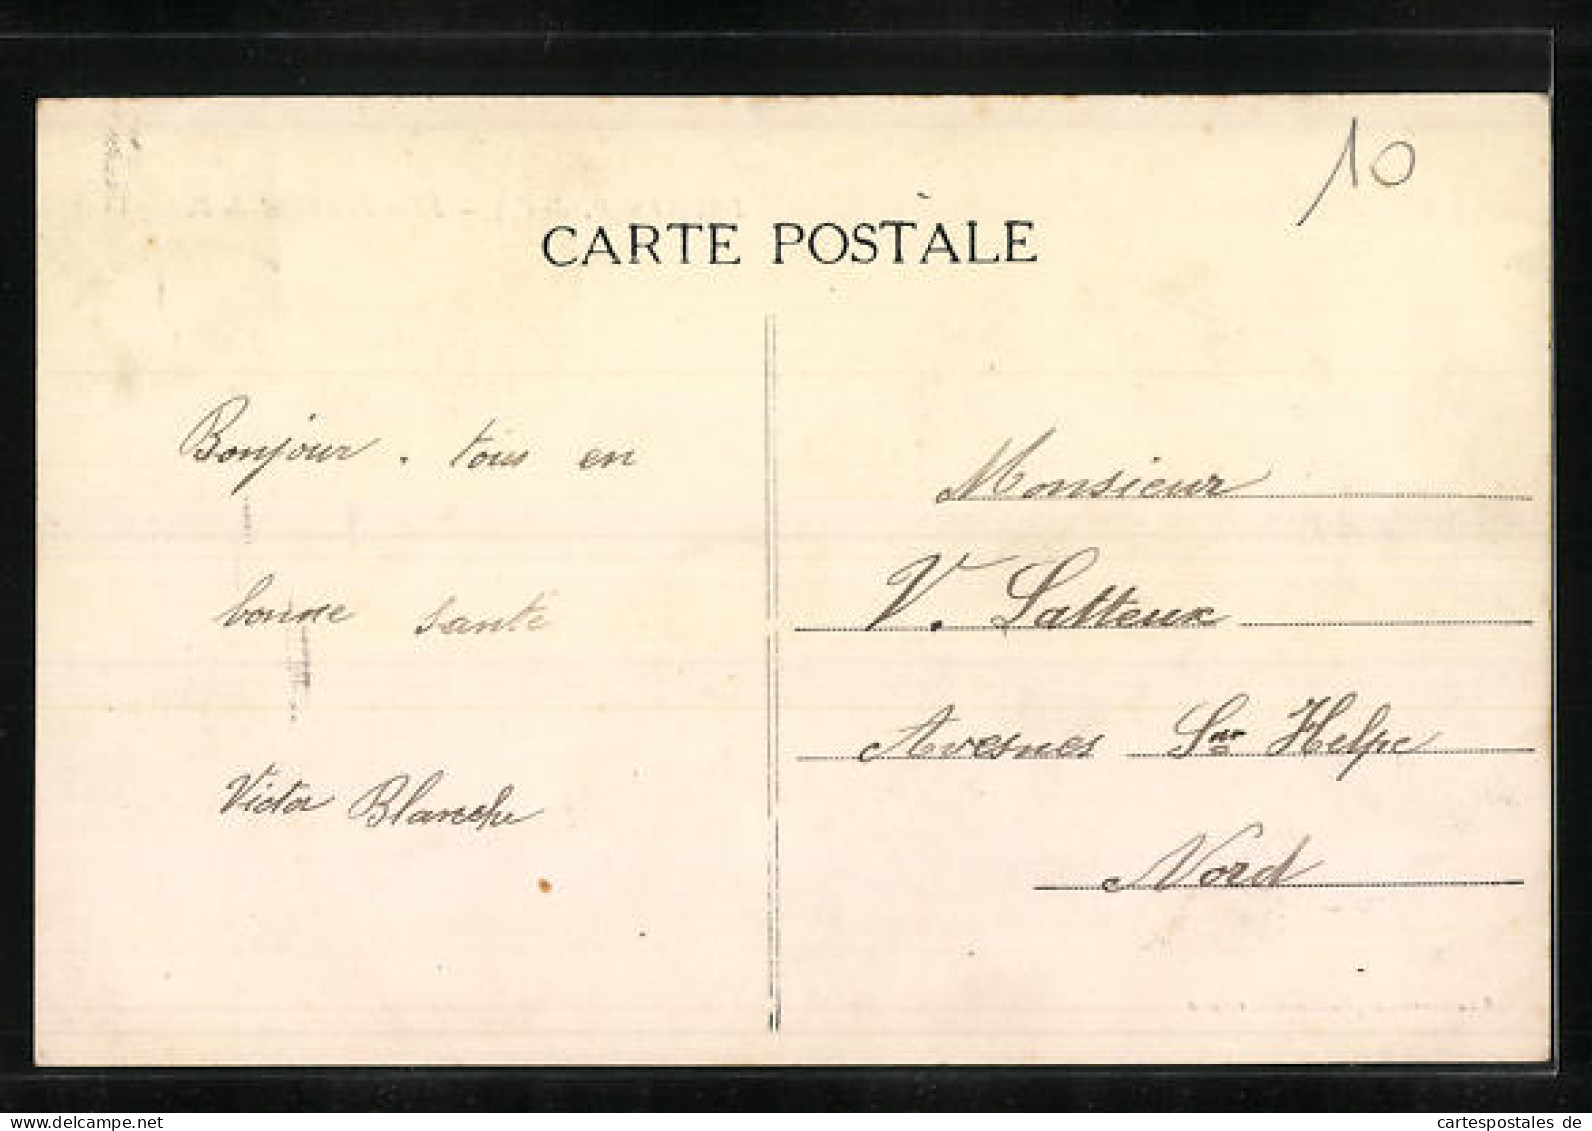 10
CARTE POSTALE
Bonjour. tous en
bonne santé
Victor Blanche
Monsieur
V. Latteux
Avesnes Sur Helpe
Nord
www.delcampe.net
cartespostales de